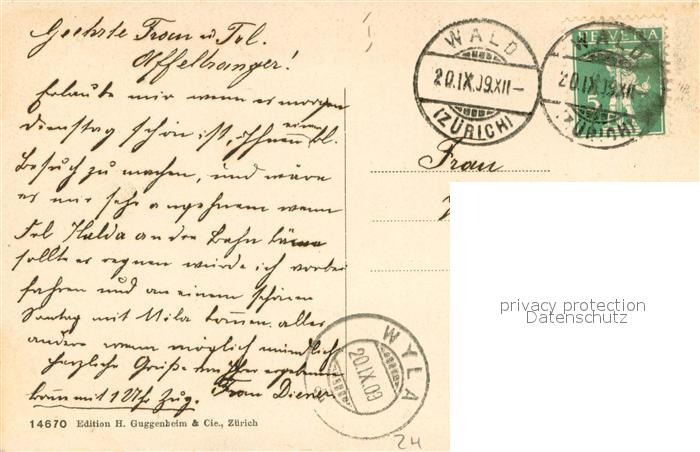 Geehrte Frau u. Frl.
Affeltranger!
Erlaube mir wenn es morgen
Dienstag schön ist, Ihnen einen kl.
Besuch zu machen, und wäre
es mir sehr angenehm wenn
Frl Hulda an die Bahn käme
sollte es regnen würde ich vorbei
fahren und an einem schönen
Sonntag mit Mila kommen. alles
andere wenn möglich mündlich
herzliche Grüße von Ihrer ergebenen
komm mit 1 Uhr Zug. Frau Diener
14670 Edition H. Guggenheim & Cie., Zürich
WALD
20.IX.09.XII-
(ZÜRICH)
WALD
20.IX.09.XII-
(ZÜRICH)
HELVETIA
5
Frau
privacy protection
Datenschutz
WYLA
20.IX.09
24